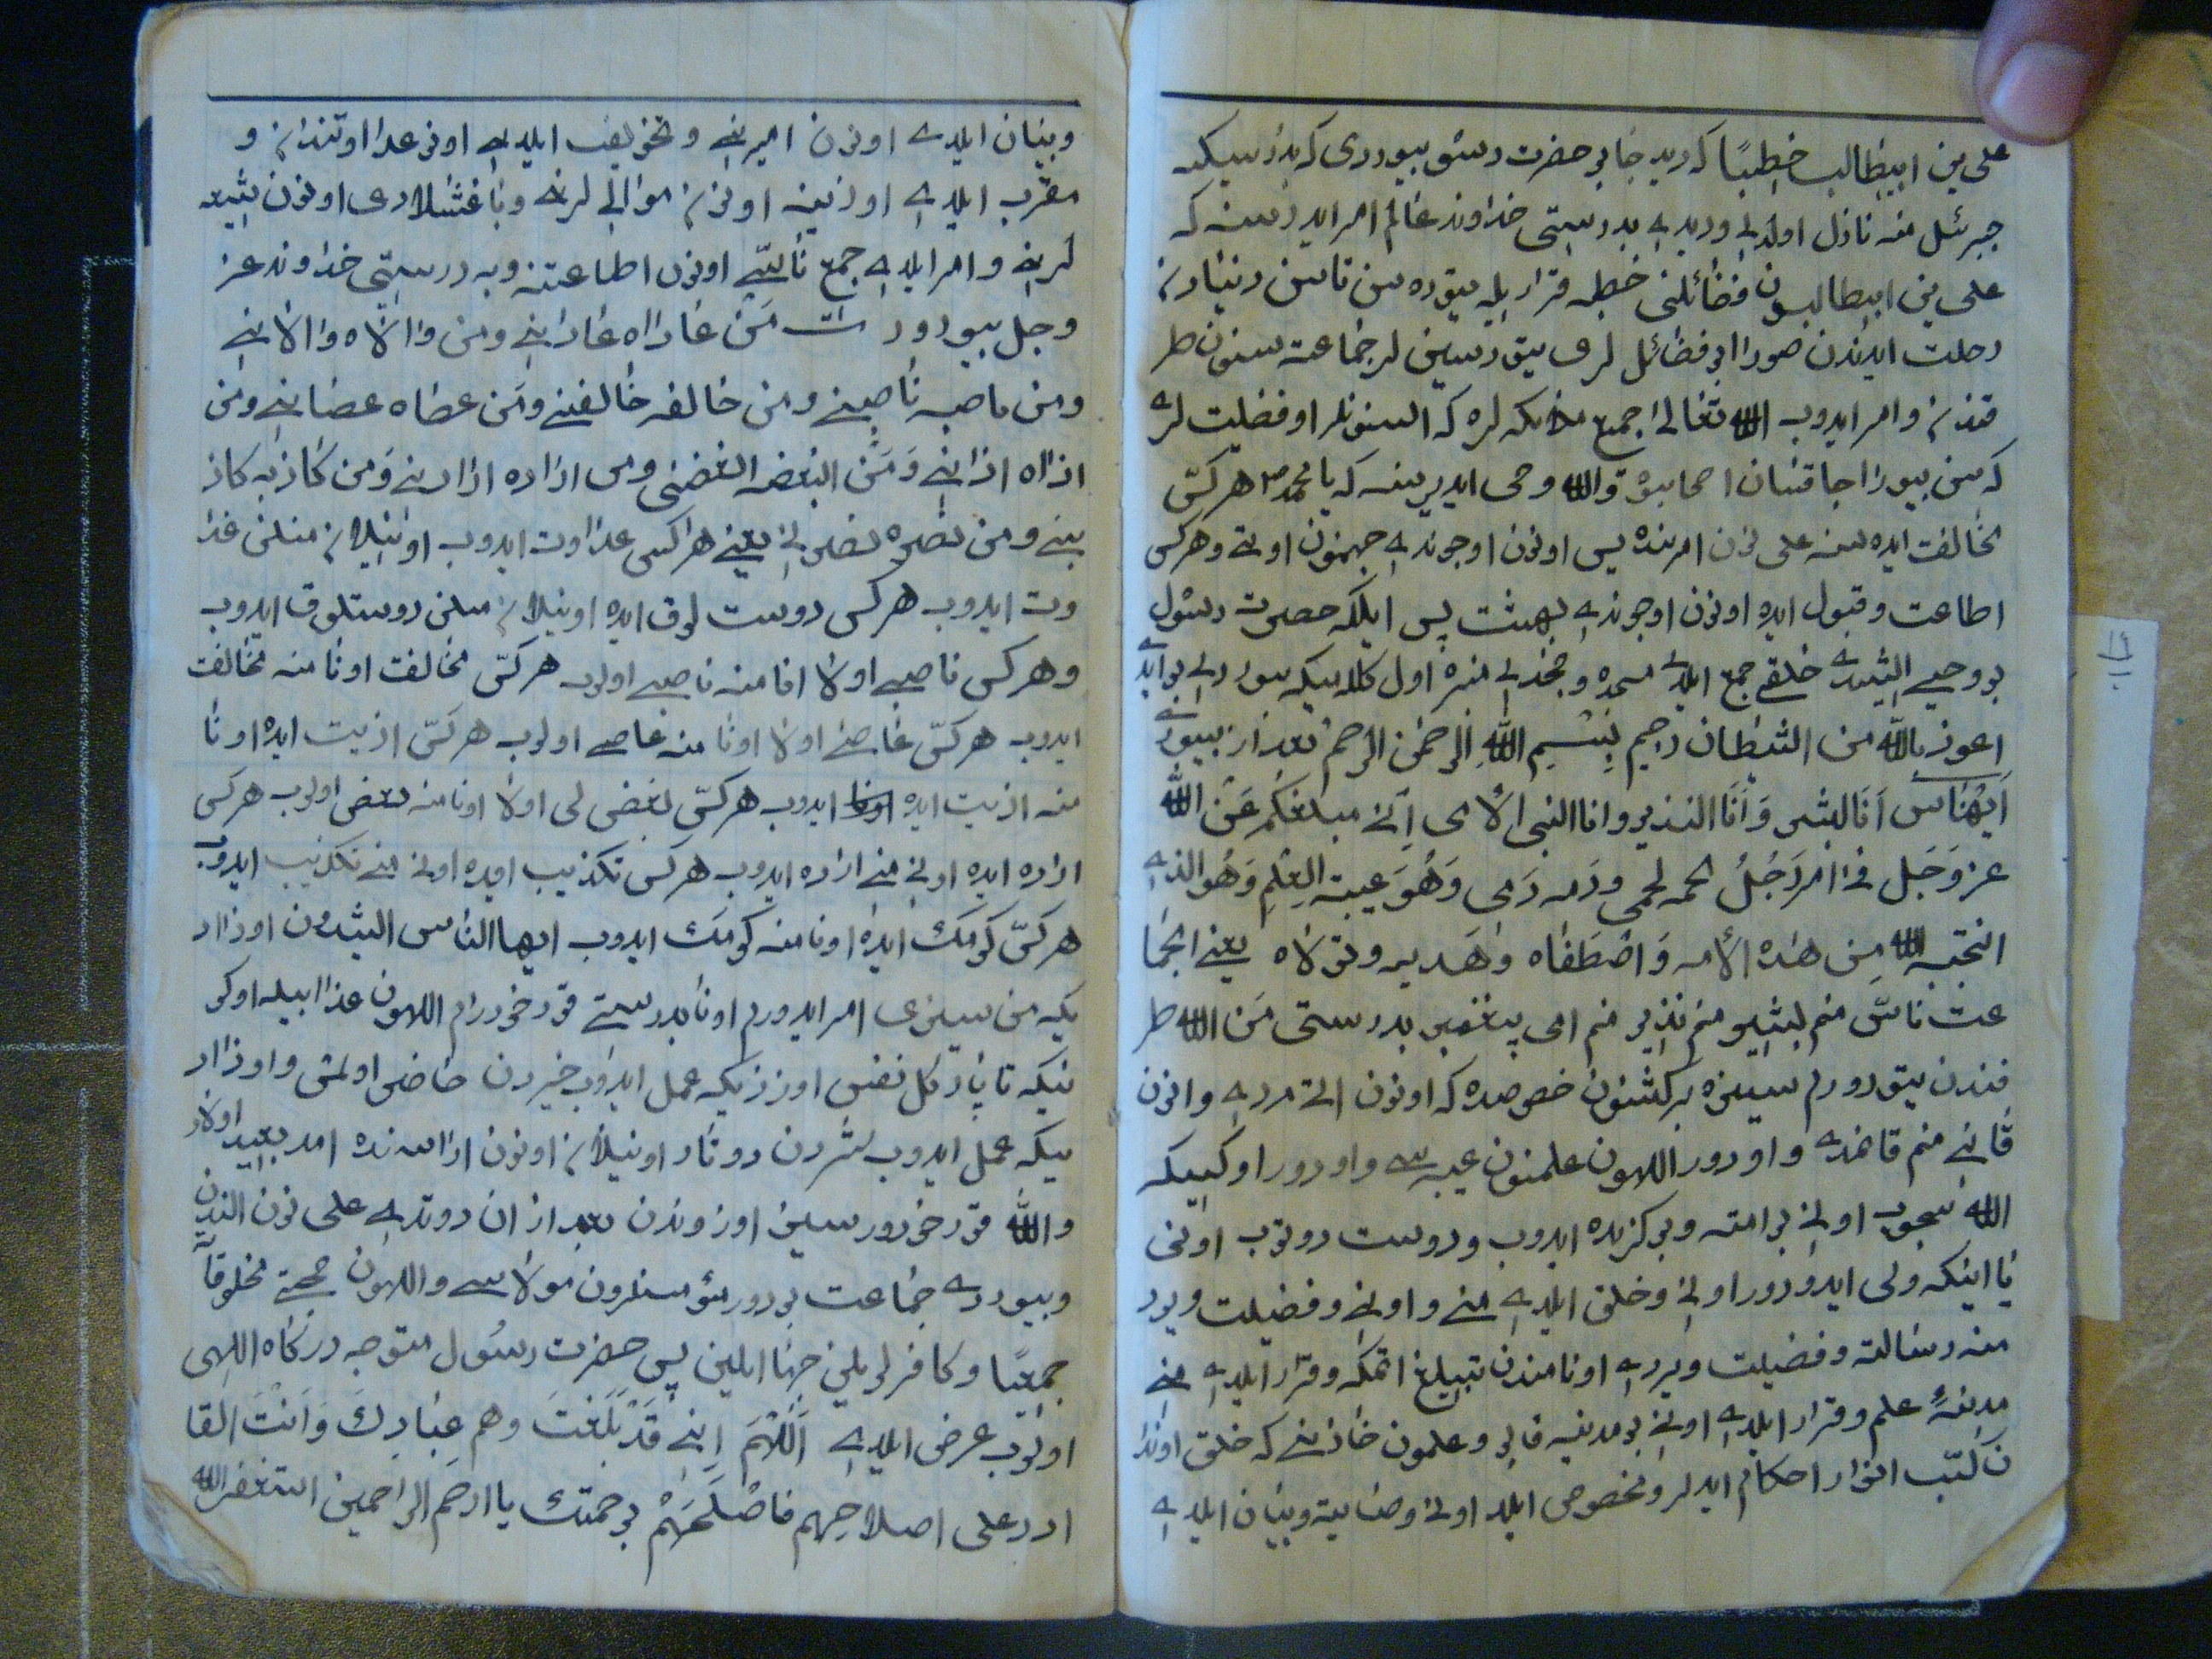 علی بن ابیطالب خطبًا که دیر جابر حضرت رسول بیوردی که بدرسیکه
جبرئیل منه نازل اولدی و دیدی بدرستی خداوند عالم امر ایدر سنه که
علی بن ابیطالبون فضائلنی خطبه قرار یله یتوره سن ناسن دنیادن
رحلت ایدندن صورا بو فضائل لری یتورسینلر جماعته سنون طر
فندن و امر ایدوب الله تعالی جمیع ملائکه لره که السونلر او فضیلت لری
که سن بیورا جاقسان اصحابوه والله وحی ایدیر سنه که یا محمد هر کسّی
مخالفت ایده سنه علی نون امرنده پس اونون اوجوندی جهنمون اوتی و هر کس
اطاعت و قبول ایده اونون اوجوندی بهشت پس ایلکه حضرت رسول
بو وحیی ایشیدی خلقی جمع ایلدی مسجده و چخدی منبره اول کلامیکه بیوردی بو ایدی
اعوذ بالله من الشیطان رجیم بِسْمِ اللهِ الرحمٰن الرحیم بعد از بیوردی
اَیهُنّاس اَنَا البشیر وَ اَنَا النذیر و انا النبی الامی اِنّی مبلغکُم عَن الله
عز وَجَل فی امر رَجُلُ لحمه لحمی و دَمه دَمی وَهُوَ عیبة العِلمِ وَهُوَ الذی
انتجبه الله مِن هٰذه الاُمه وَ اصْطَفاه وَ هَدیه و تولاه یعنی ایجما
عت ناسّ منم بشیر و منم نذیر منم امی پیغمبر بدرستی مَن الله طر
فندن یتوررم سیزه بر کشنون خصوصنده که اونون اتی مردی و انون
قانی منم قانمدی و او دور اللهون علمنون عیبه سی و او دور او کسیکه
الله سچوب اونی بو امته و برکزیده ایدوب و دوست دوتوب اونی
یا اینکه ولی ایدوردور اونی و خلق ایلدی منی و اونی و فضیلت ویرد
منه رسالته و فضیلت ویردی اونا مندن تبلیغ اتمکه و قرار ایلدی منی
مدینهٔ علم و قرار ایلدی اونی بو مدینیه قاپو و علمون خازنی که خلق اوندا
ن کسب انوار احکام ایدلر و مخصوص ایلد اونی وصایته و بیان ایلدی
و بیان ایلدی اونون امیرنی و تخویف ایلدی اونو عداوتندن و
مقرب ایلدی اوزینه اونون موالی لرنی و باغشلادی اونون شیعه
لرینی و امر ایلدی جمع ناسّی اونون اطاعتنه و به درستی خداوند عز
و جل بیورور انّ مَن عاداه عادانی و من والاه والانی
و من ناصبه ناصبنی و من خالفه خالفنی و مَن عصاه عصانی و من
اذاه اذانی وَ مَن ابغضه ابغضنی و من اراده ارادنی وَ من کاذبه کاذ
بنی و من نصره نصرنی یعنی هر کس عداوت ایدوب اونیلان منلن عدا
وت ایدوب هر کس دوست لوق ایده اونیلان منلن دوستلوق ایدوب
و هر کس ناصبی اولا اونا منه ناصبی اولوب هر کسّی مخالفت اونا منه مخالفت
ایدوب هر کسّی عاصی اولا اونا منه عاصی اولوب هر کسّی اذیت ایده اونا
منه اذیت ایده اونا ایدوب هر کسّی بغضی لی اولا اونا منه بغضی اولوب هر کس
اراده ایده اونی منی اراده ایدوب هر کس تکذیب ایده اونی منی تکذیب ایدوب
هر کسّ کومک ایده اونا منه کومک ایدوب ایها الناس ایشیدون اوزاد
یکه من سیزی امر ایدورم اونا بدرستی قورخودرام اللهون عذابیله اوکو
نیکه تاپار کل نفس اوززیکه عمل ایدوب خیردن حاضر اولمش و اوزاد
یکه عمل ایدوب شردن دوتار اونیلان اونون اراسنده امد بعید اولار
والله قورخودور سیزی اوزوندن بعد از ان دوتدی علی نون الندن
و بیوردی جماعت بودور مؤمنلرون مولاسی و اللهون حجتی مخلوقا
جمیعًا و کافرلریلن جهاد ایلین پس حضرت رسُول متوجه درکاه اللهی
اولوب عرض ایلدی اَللّٰهُمَ اِنی قَدْ بَلَغْتَ وهم عِبٰادِکَ وَ اَنْتَ القا
ادر علی اصلاحِهِم فاصْلَحَهُمْ برحمتک یا ارحم الراحمین استغفرالله